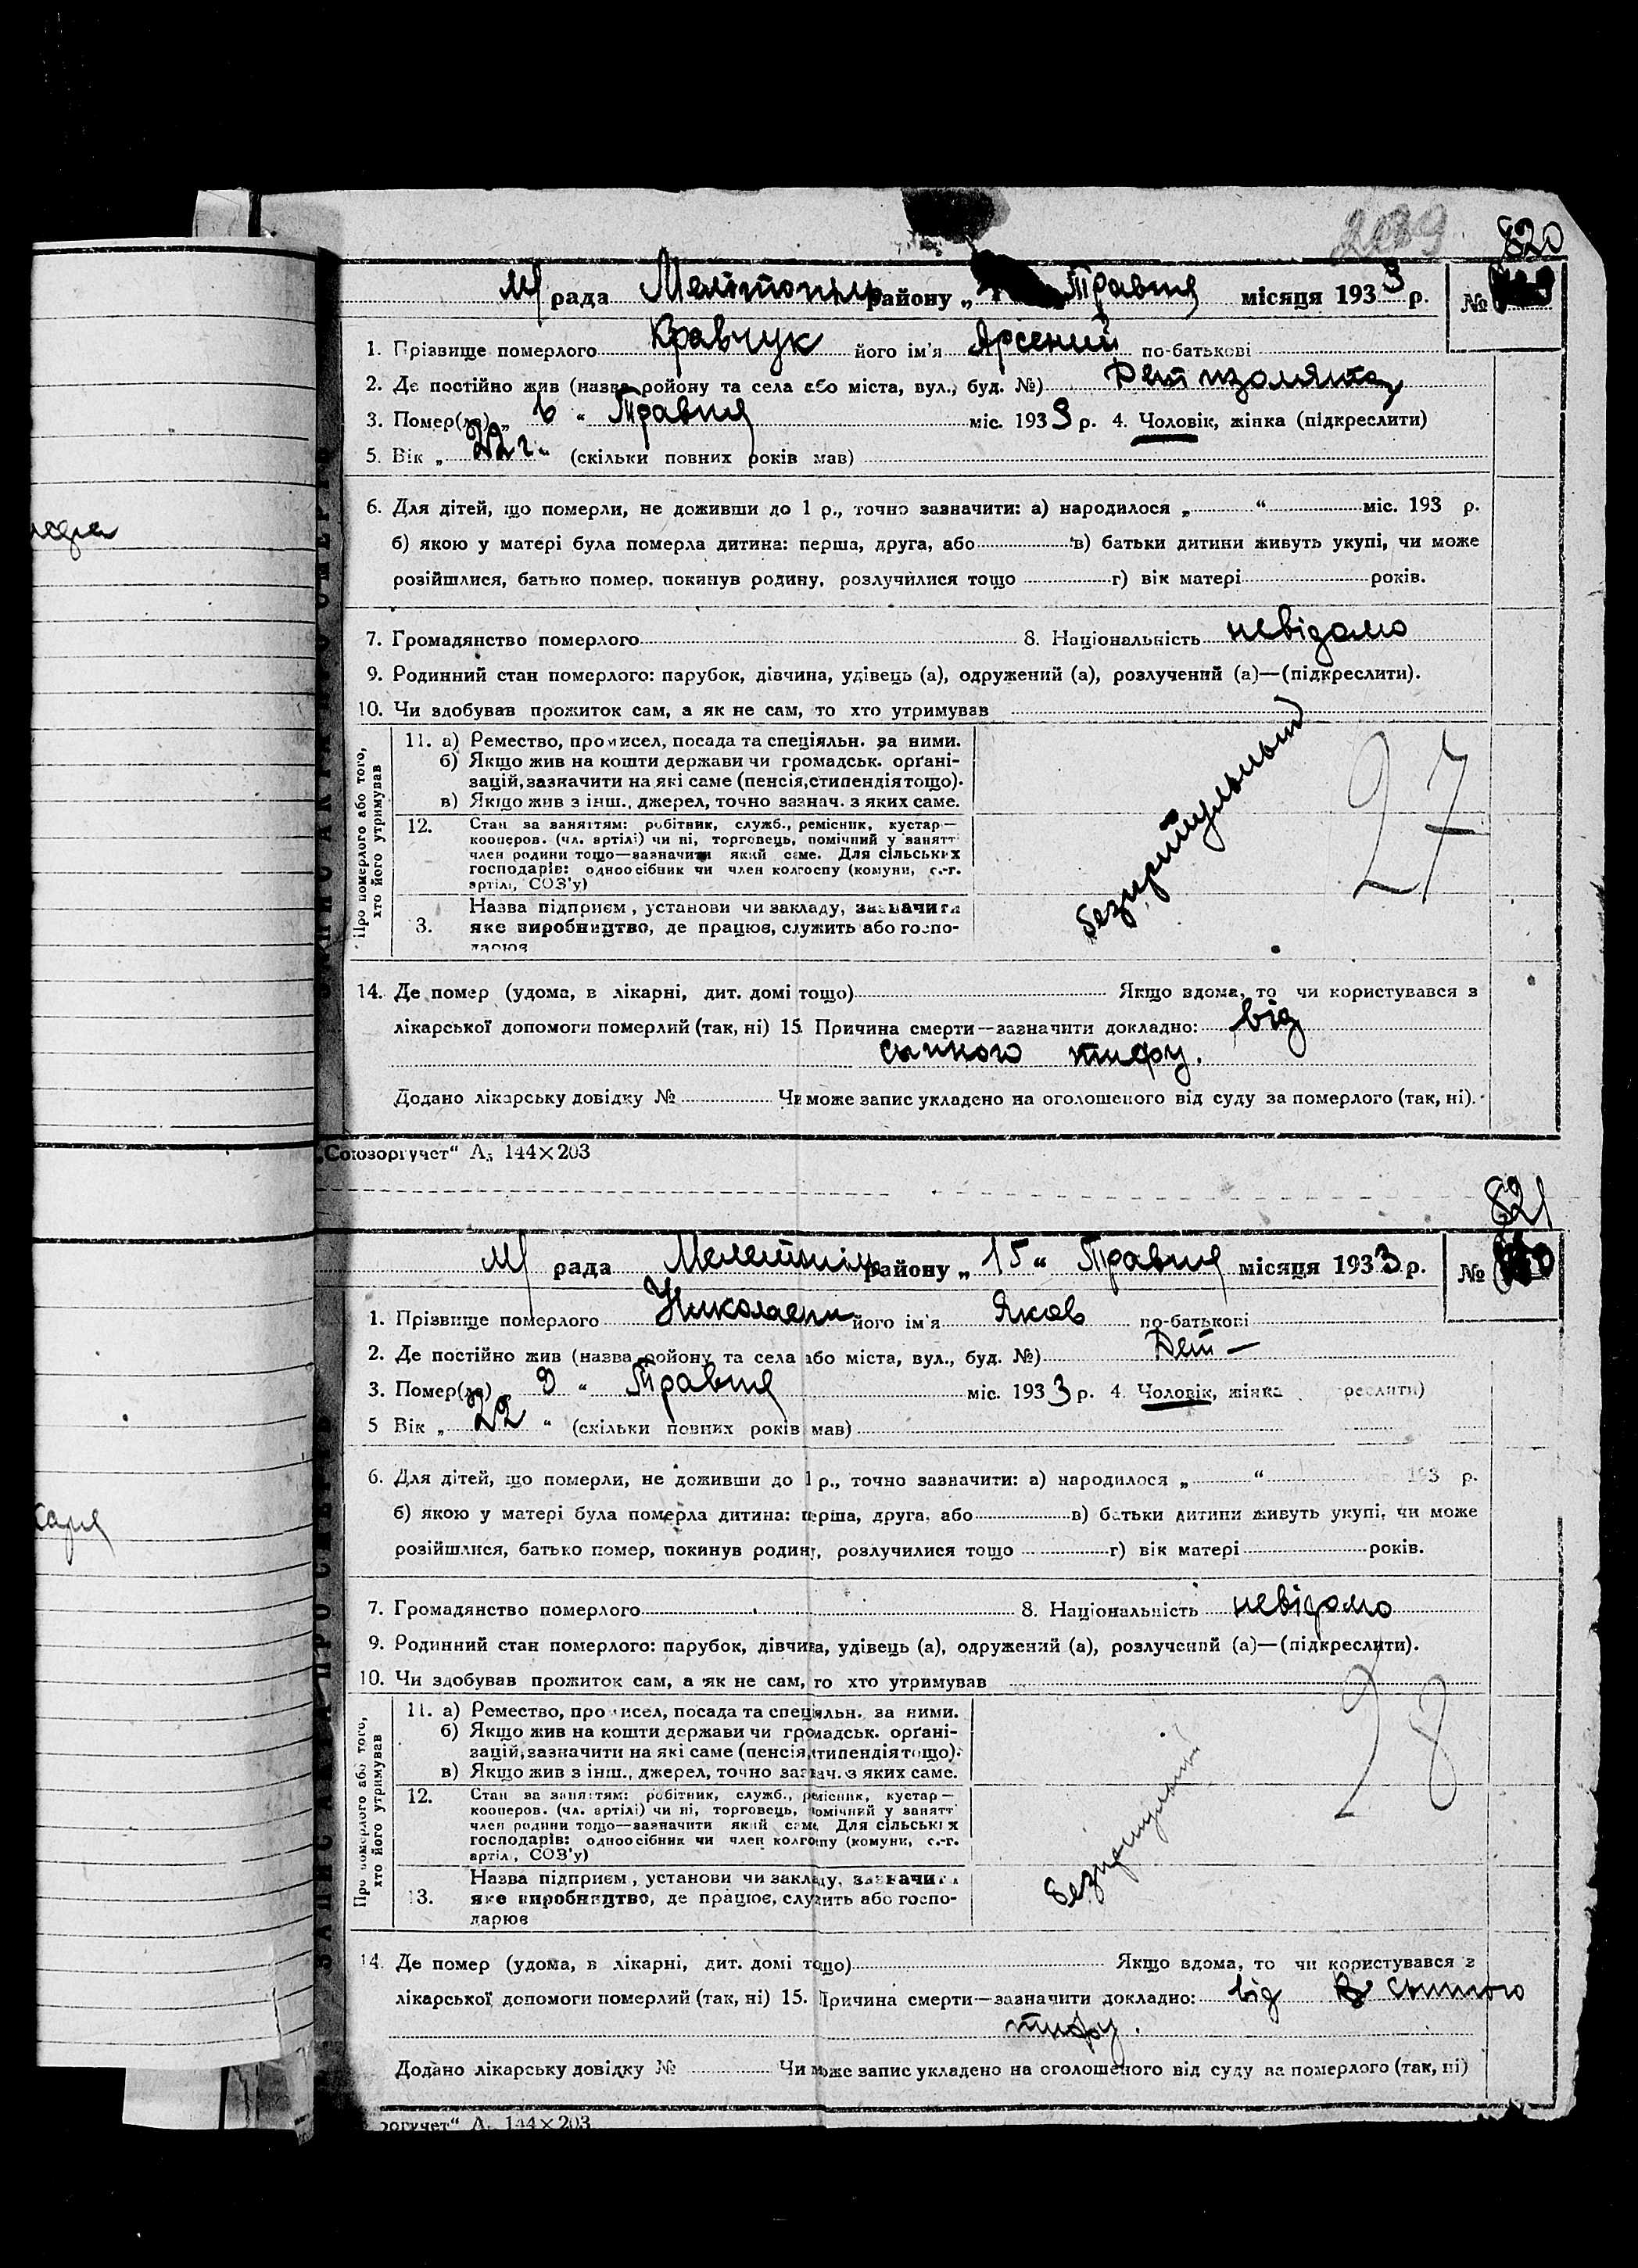 820
М/рада Мелітопільрайону „ Травня місяця 1933 р. №
1. Прізвище померлого Кравчук його ім'я Арсений по-батькові
2. Де постійно жив (назва ройону та села або міста, вул., буд. №) Дет изолятор
3. Помер(ла) „ 6 “ Травня міс. 1933 р. 4. Чоловік, жінка (підкреслити)
5. Вік „ 22 г. “ (скільки повних років мав)
6. Для дітей, що померли, не доживши до 1 р., точно зазначити: а) народилося „ “ міс. 193 р.
б) якою у матері була померла дитина: перша, друга, або в) батьки дитини живуть укупі, чи може
розійшлися, батько помер, покинув родину, розлучилися тощо г) вік матері років.
7. Громадянство померлого 8. Національність невідомо
9. Родинний стан померлого: парубок, дівчина, удівець (а), одружений (а), розлучений (а)—(підкреслити).
10. Чи здобував прожиток сам, а як не сам, то хто утримував
Про померлого або того, хто його утримував
11. а) Ремество, промисел, посада та спеціяльн. за ними.
б) Якщо жив на кошти держави чи громадськ. орґані-
зацій, зазначити на які саме (пенсія, стипендія тощо).
в) Якщо жив з інш., джерел, точно зазнач. з яких саме.
12. Стан за заняттям: робітник, служб., ремісник, кустар—
кооперов. (чл. артілі) чи ні, торговець, помічний у занятт
член родини тощо—зазначити який саме. Для сільських
господарів: одноосібник чи член колгоспу (комуни, с.-г.
артілі, СОЗ'у)
Назва підприєм, установи чи закладу, зазначити
3. яке виробництво, де працює, служить або госпо-
дарює
безпритульний
27
14. Де помер (удома, в лікарні, дит. домі тощо) Якщо вдома, то чи користувався з
лікарської допомоги померлий (так, ні) 15. Причина смерти—зазначити докладно: від
сыпного тифу.
Додано лікарську довідку № Чи може запис укладено на оголошеного від суду за померлого (так, ні).
„Союзоргучет“ А5 144×203
821
М/ рада Мелетпільрайону „ 15 “ Травня місяця 1933 р. №
1. Прізвище померлого його ім'я Яков по-батькові
2. Де постійно жив (назва ройону та села або міста, вул., буд. №) Дет —
3. Помер(ла) „ 9 “ Травня міс. 1933 р. 4. Чоловік, жінка реслити)
5 Вік „ 22 “ (скільки повних років мав)
6. Для дітей, що померли, не доживши до 1 р., точно зазначити: а) народилося „ “ 193 р.
б) якою у матері була померла дитина: перша, друга, або в) батьки дитини живуть укупі, чи може
розійшлися, батько помер, покинув родину, розлучилися тощо г) вік матері років.
7. Громадянство померлого 8. Національність невідомо
9. Родинний стан померлого: парубок, дівчина, удівець (а), одружений (а), розлучений (а)—(підкреслити).
10. Чи здобував прожиток сам, а як не сам, то хто утримував
Про померлого або того, хто його утримував
11. а) Ремество, промисел, посада та спеціяльн. за ними.
б) Якщо жив на кошти держави чи громадськ. орґані-
зацій, зазначити на які саме (пенсія, стипендія тощо).
в) Якщо жив з інш., джерел, точно зазнач. з яких саме.
12. Стан за заняттям: робітник, служб., ремісник, кустар—
кооперов. (чл. артілі) чи ні, торговець, помічний у занятт
член родини тощо—зазначити який саме Для сільських
господарів: одноосібник чи член колгоспу (комуни, с.-г.
артіл., СОЗ'у)
Назва підприєм, установи чи закладу, зазначити
13. яке виробництво, де працює, служить або госпо-
дарює
Безпритульний
28
14. Де помер (удома, в лікарні, дит. домі тощо) Якщо вдома, то чи користувався з
лікарської допомоги померлий (так, ні) 15. Причина смерти—зазначити докладно: від Сыпного
тифу.
Додано лікарську довідку № Чи може запис укладено на оголошеного від суду за померлого (так, ні)
оргучет“ А. 144×203